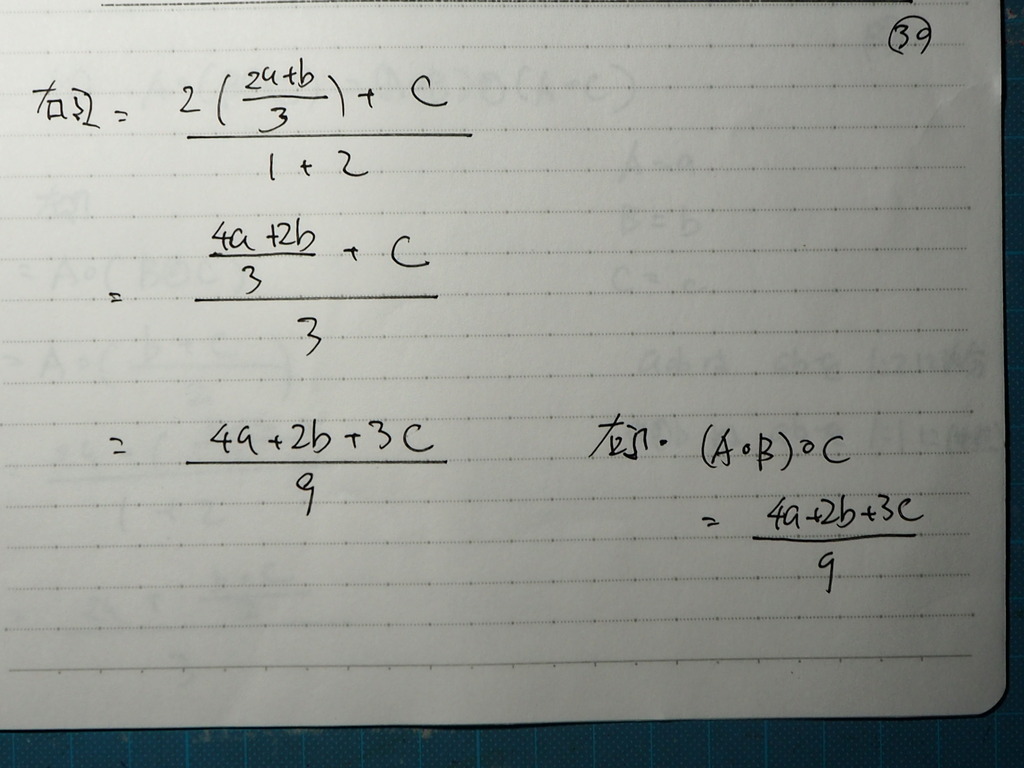 39
右辺 = 2(2a+b/3) + C / 1 + 2
= 4a+2b/3 + C / 3
= 4a+2b+3C / 9
右辺・ (A∘B)∘C
= 4a+2b+3C / 9